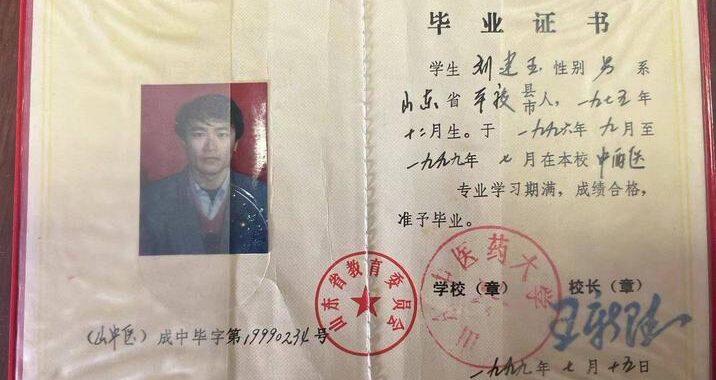 毕业证书
学生 刘建玉 性别 男 系
山东省 县市人，一九七五年
十二月生。于一九九六年九月至
一九九九年七月在本校中西医
专业学习期满，成绩合格，
准予毕业。
学校（章） 校长（章）
医药大学
山东省教育委员会
（山中医）成中毕字第19990234号
一九九九年七月十五日